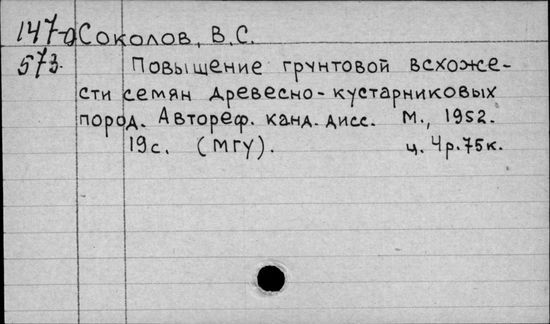 147-д Соколов, В.С.
573. Повышение грунтовой всхоже-
сти семян древесно-кустарниковых
пород. Автореф. канд. дисс. М., 1952.
19с. (МГУ). ц. 4р.75к.